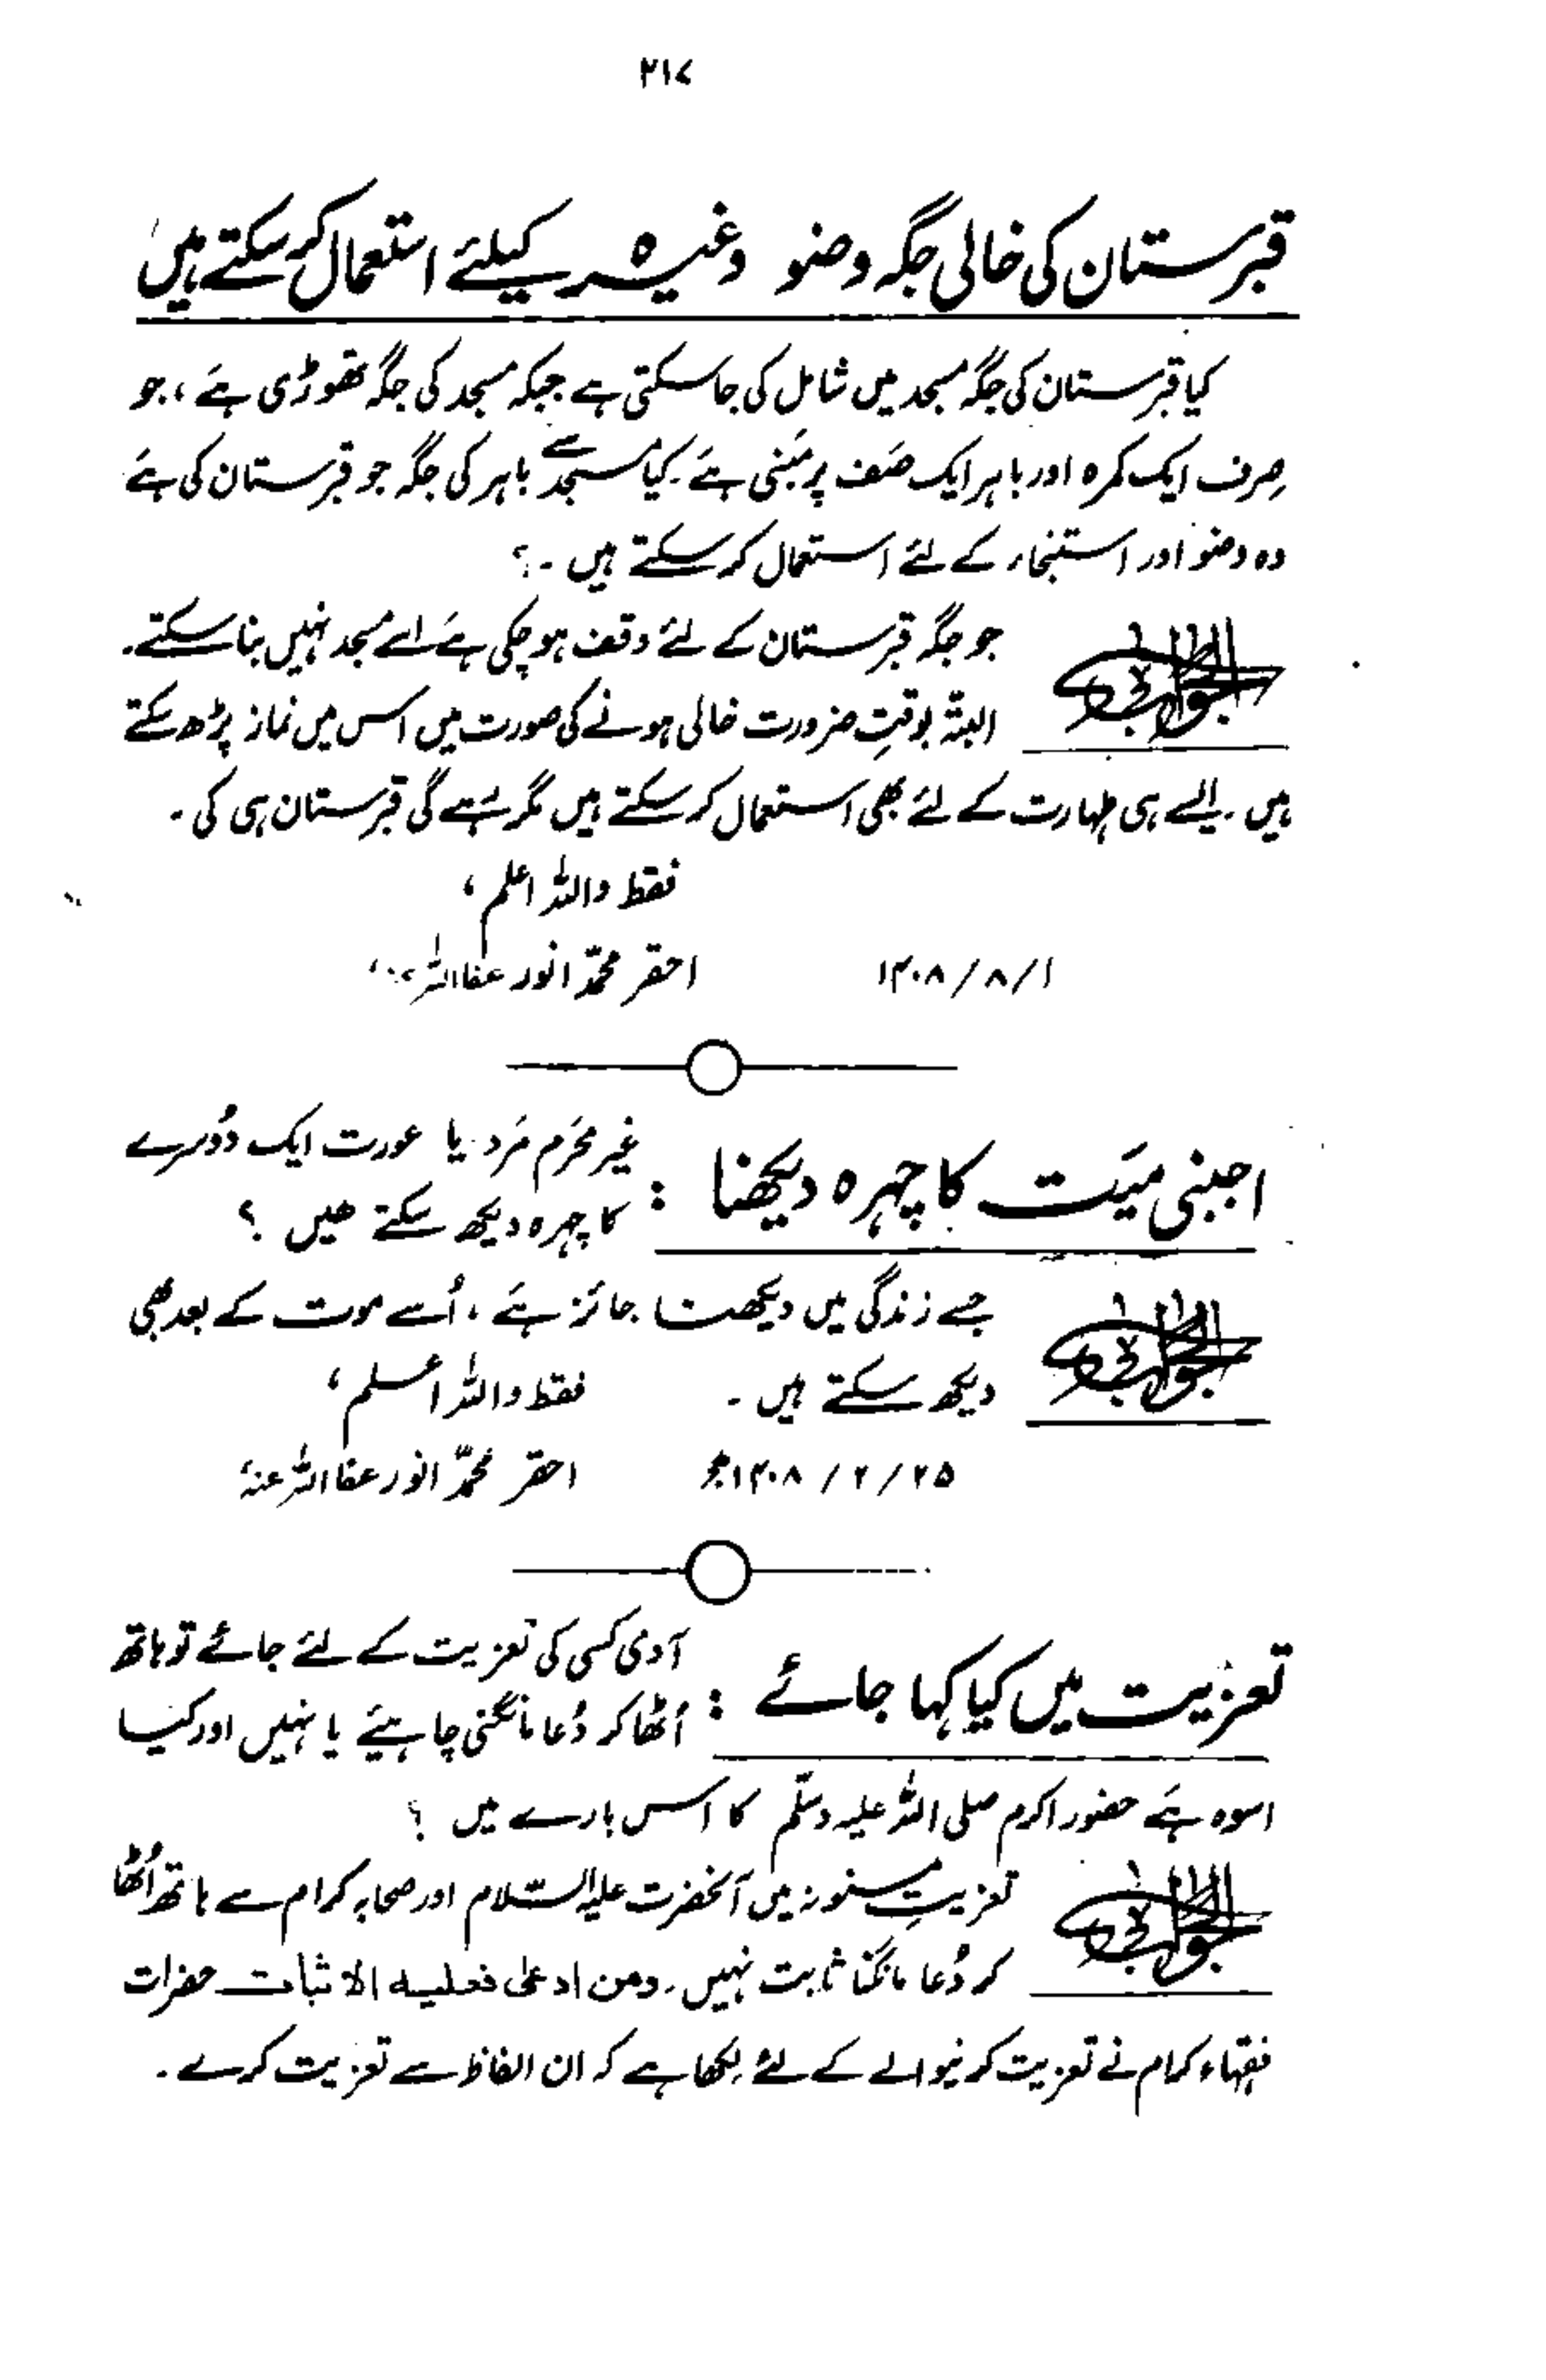 ۲۱۷
قبرستان کی خالی جگہ وضو وغیرہ کیلئے استعمال کر سکتے ہیں
کیا قبرستان کی جگہ مسجد میں شامل کی جا سکتی ہے جبکہ مسجد کی جگہ تھوڑی ہے، جو
صِرف ایک کمرہ اور باہر ایک صَف پر مَبنی ہے۔ کیا مسجد سے باہر کی جگہ جو قبرستان کی ہے
وہ وضو اور استنجاء کے لئے استعمال کر سکتے ہیں ۔؟
الجواب جو جگہ قبرستان کے لئے وقف ہو چکی ہے اسے مسجد نہیں بنا سکتے۔
البتہ بوقتِ ضرورت خالی ہونے کی صورت میں اس میں نماز پڑھ سکتے
ہیں ۔ ایسے ہی طہارت کے لئے بھی استعمال کر سکتے ہیں مگر رہے گی قبرستان ہی کی ۔
فقط واللہ اعلم ،
احقر محمّد انور عفا اللہ عنہ، ۱/ ۸/ ۱۴۰۸
اجنبی میّت کا چہرہ دیکھنا : غیر محرَم مَرد یا عورت ایک دُوسرے
کا چہرہ دیکھ سکتے ھیں ؟
الجواب جسے زندگی میں دیکھنا جائز ہے ، اُسے موت کے بعد بھی
دیکھ سکتے ہیں ۔ فقط واللہ اعلم ،
۲۵/ ۲/ ۱۴۰۸ھ احقر محمّد انور عفا اللہ عنہٗ
تعزیت میں کیا کہا جائے : آدمی کسی کی تعزیت کے لئے جائے تو ہاتھ
اُٹھا کر دُعا مانگنی چاہیئے یا نہیں اور کیا
اسوہ ہے حضور اکرم صلی اللہ علیہ وسلّم کا اس بارے میں ؟
الجواب تعزیتِ مسنونہ میں آنحضرت علیہ السّلام اور صحابہ کرام سے ہاتھ اُٹھا
کر دُعا مانگنا ثابت نہیں ۔ ومن ادعیٰ فعلیہ الاثبات حضرات
فقہاء کرام نے تعزیت کرنیوالے کے لئے لکھا ہے کہ ان الفاظ سے تعزیت کرے ۔